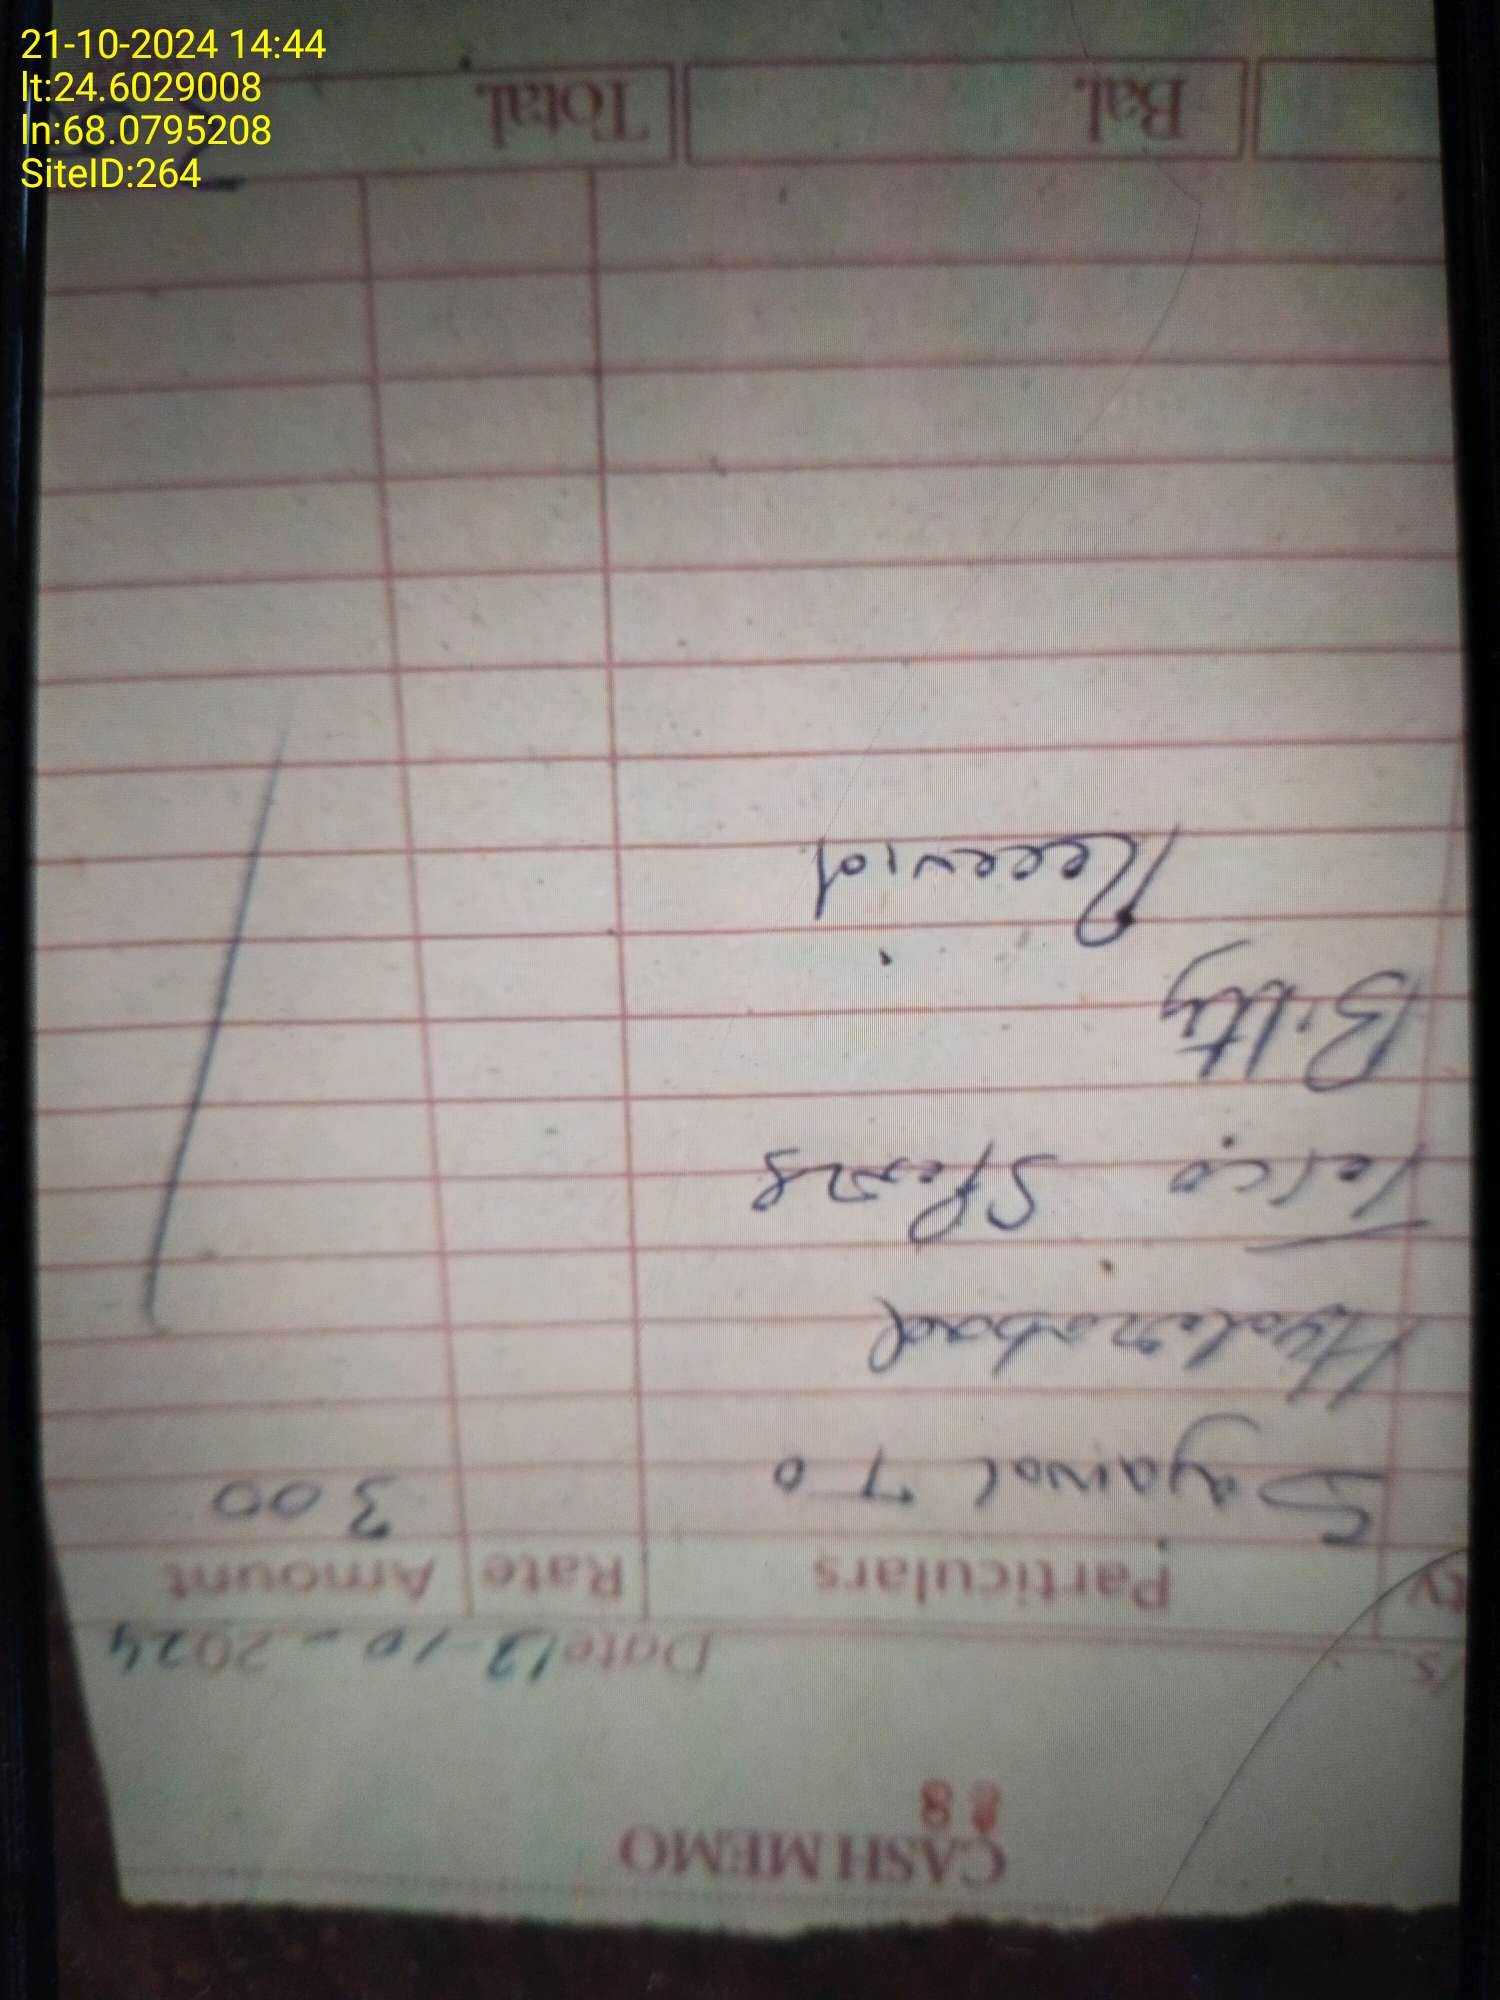 21-10-2024 14:44
lt:24.6029008
ln:68.0795208
SiteID:264
CASH MEMO
88
Date 12-10-2024
Particulars Rate Amount
Sayawal To 300
Hyderabad
Telco
Bilty
Recevid
Bal. Total.